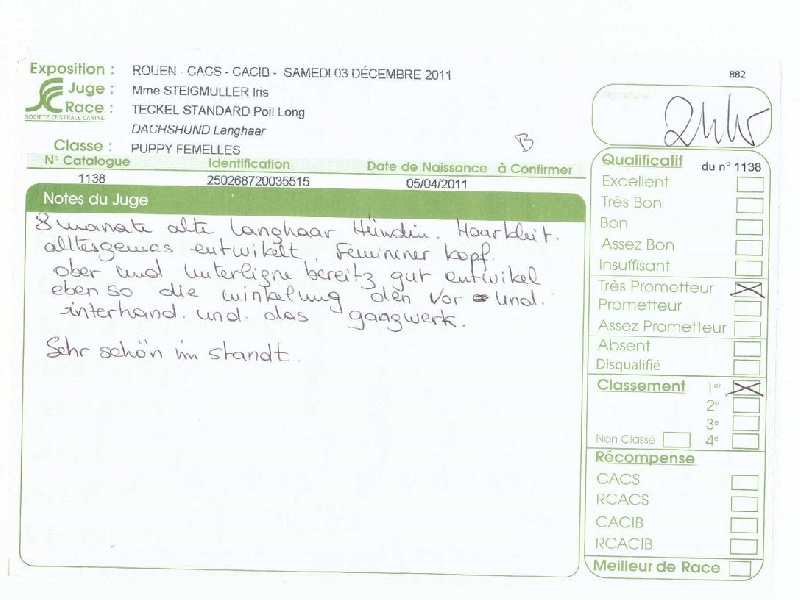 Exposition : ROUEN - CACS - CACIB - SAMEDI 03 DÉCEMBRE 2011
882
Juge : Mme STEIGMULLER Iris
Race : TECKEL STANDARD Poil Long
SOCIETE CENTRALE CANINE
DACHSHUND Langhaar
Classe : PUPPY FEMELLES
B
N° Catalogue Identification Date de Naissance à Confirmer
1138 250268720035515 05/04/2011
Notes du Juge
8 manate alte Langhaar Hündin. Haarkleit.
altersgemäs entwikelt, Femininer kopf.
ober und Unterligne bereitz gut entwikel
ebenso die winkelung den Vor und.
interhand. und das gangwerk.
Sehr schön im standt.
Signature
Qualificatif du n° 1138
Excellent
Très Bon
Bon
Assez Bon
Insuffisant
Très Prometteur
Prometteur
Assez Prometteur
Absent
Disqualifié
Classement 1er
2e
3e
Non Classé 4e
Récompense
CACS
RCACS
CACIB
RCACIB
Meilleur de Race